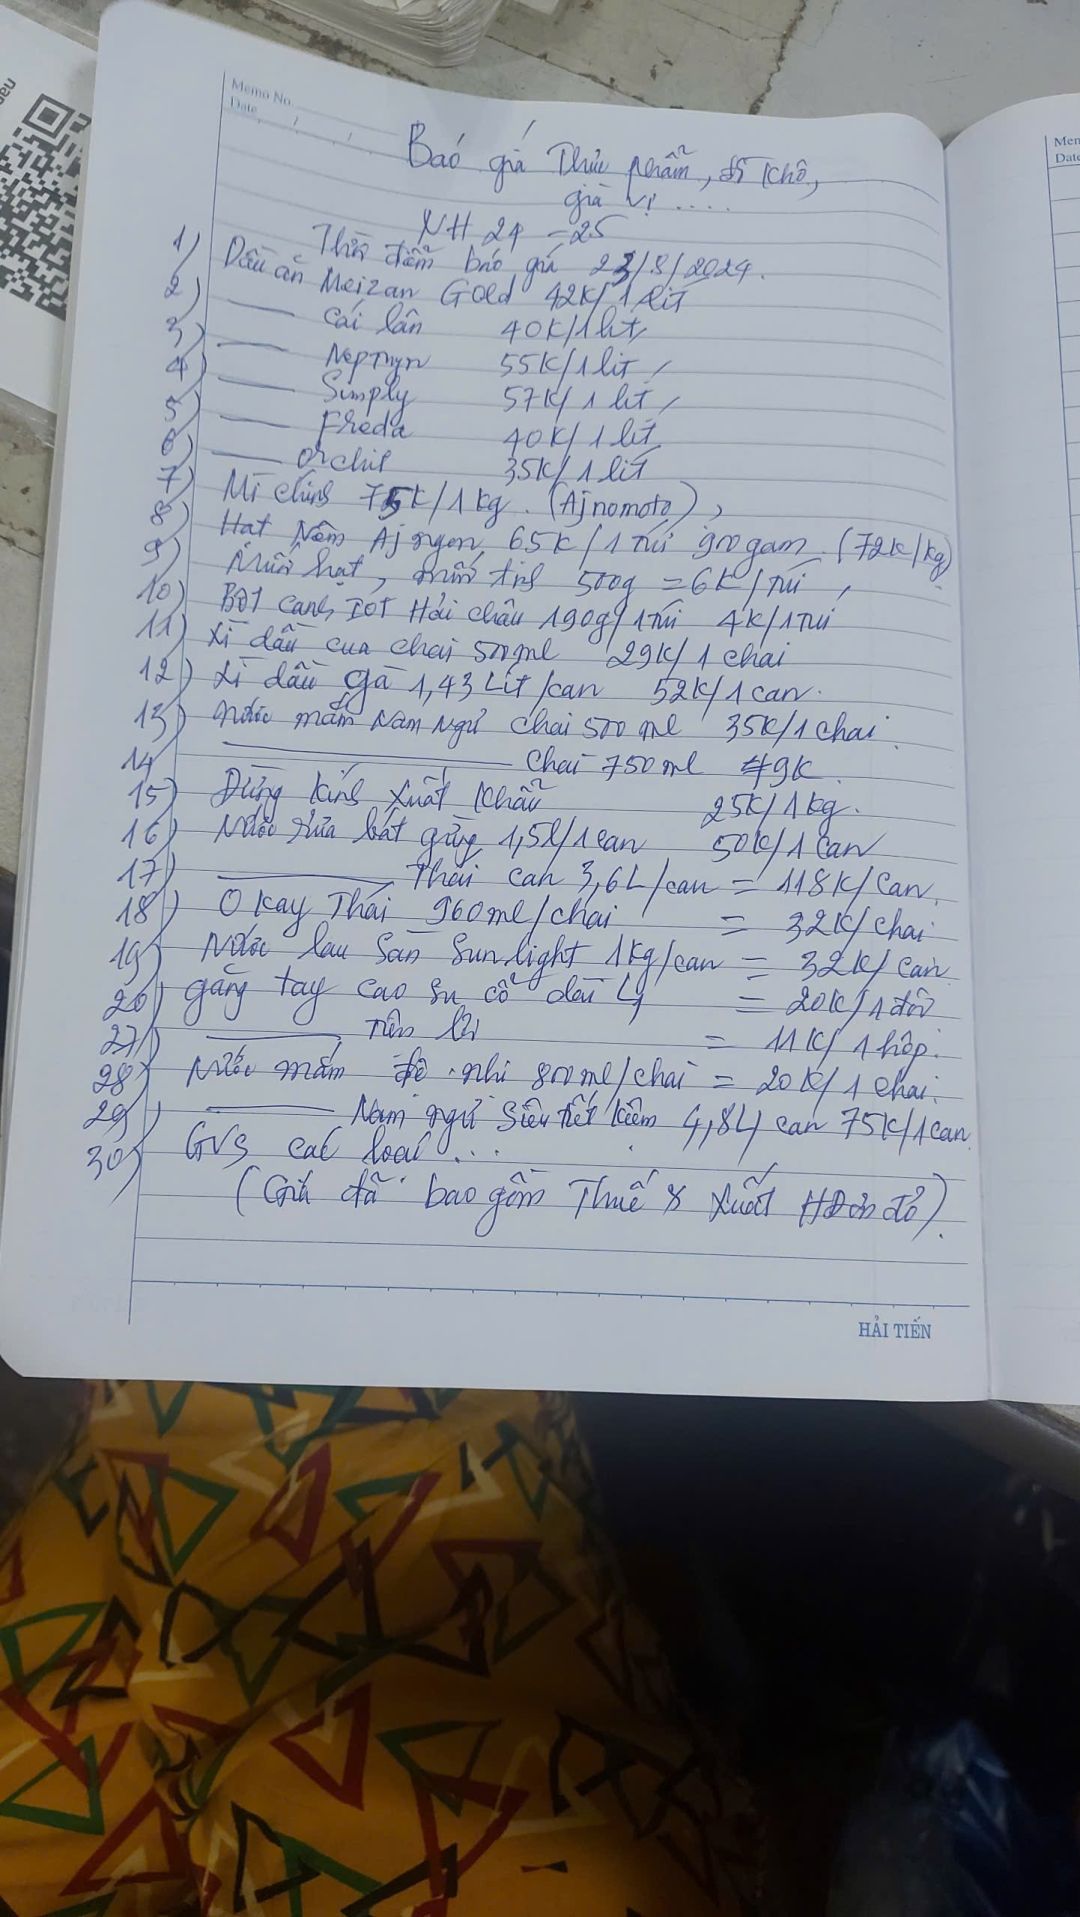 Memo No.
Date
Báo giá Thực phẩm, đồ khô,
gia vị ....
NH 24 - 25
Thời điểm báo giá 23/8/2024.
1) Dầu ăn Meizan Gold 42K/1 lít
2) —— Cái lân 40K/1 lít
3) —— Neptuyn 55K/1 lít
4) —— Simply 57K/1 lít
5) —— Freda 40K/1 lít
6) —— Orchil 35K/1 lít
7) Mì chính 75K/1kg. (Ajnomoto),
8) Hạt Nêm Aj ngon, 65K/1 Túi 900gam. (72K/kg)
9) Muối hạt, muối tinh 500g = 6K/Túi,
10) Bột canh Iốt Hải châu 190g/1Túi 4K/1Túi
11) Xì dầu cua chai 500ml 29K/1 chai
12) Xì dầu gà 1,43 Lít/can 52K/1 can.
13) Nước mắm Nam Ngư chai 500ml 35K/1 chai.
14 —— Chai 750ml 49K.
15) Đường kính Xuất Khẩu 25K/1kg.
16) Nước rửa bát gừng 1,5l/1can 50K/1 Can
17) —— Thái can 3,6L/can = 118K/Can.
18) Okay Thái 960ml/chai = 32K/chai
19) Nước lau sàn Sunlight 1kg/can = 32K/can
20) găng tay cao su cổ dài L4 = 20K/1 đôi
27) —— = 11K/1 hộp.
28) Nước mắm đệ nhị 800ml/chai = 20K/1 chai.
29) —— Nam ngư Siêu tiết kiệm 4,8L/can 75K/1can
30) GVS các loại ...
(Giá đã bao gồm Thuế & Xuất HĐơn đỏ).
HẢI TIẾN
Date